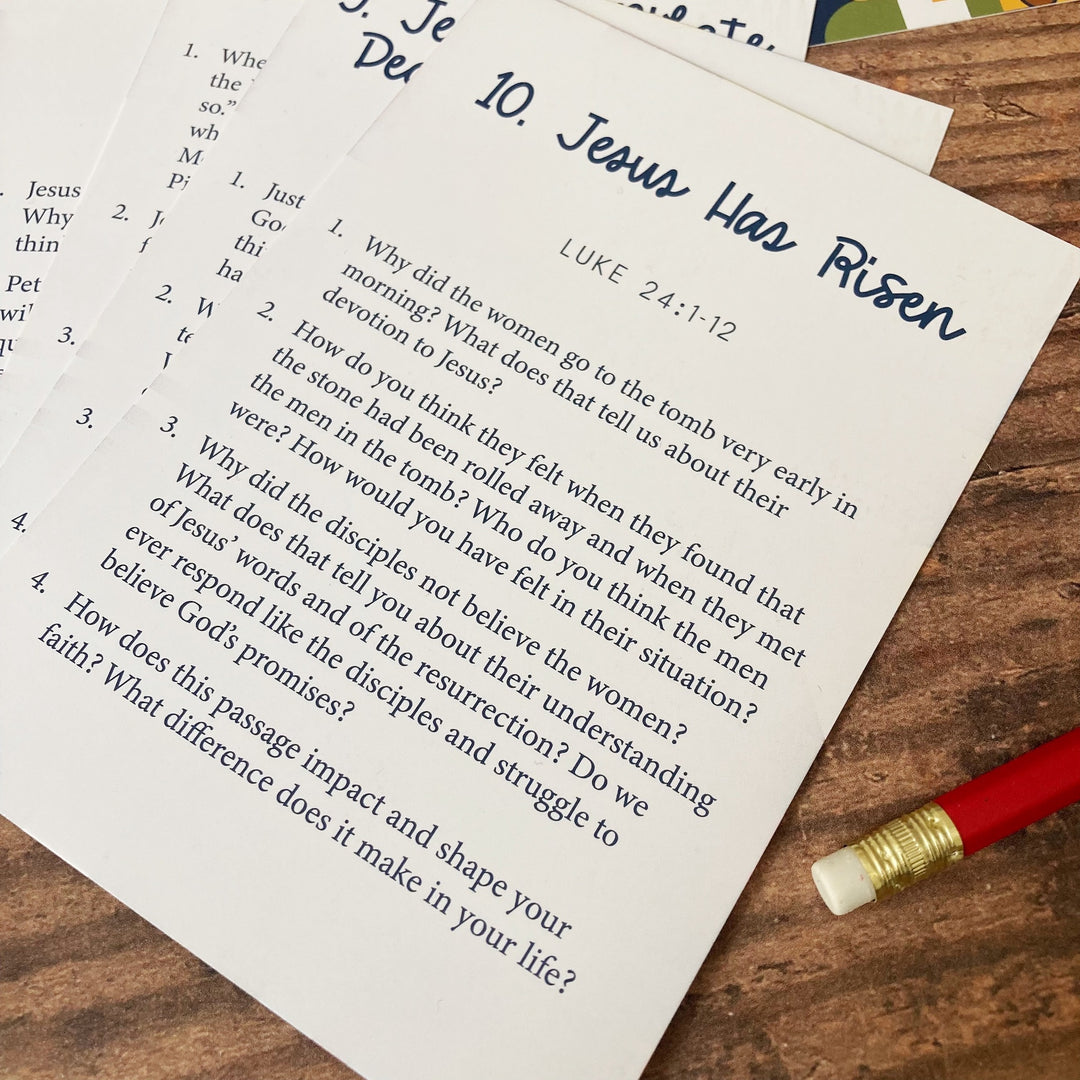 10. Jesus Has Risen
LUKE 24:1-12
1. Why did the women go to the tomb very early in
morning? What does that tell us about their
devotion to Jesus?
2. How do you think they felt when they found that
the stone had been rolled away and when they met
the men in the tomb? Who do you think the men
were? How would you have felt in their situation?
3. Why did the disciples not believe the women?
What does that tell you about their understanding
of Jesus' words and of the resurrection? Do we
ever respond like the disciples and struggle to
believe God's promises?
4. How does this passage impact and shape your
faith? What difference does it make in your life?
1.
the
so."
1. Just
2.
2.
3.
3.
4.
Jesus
Why